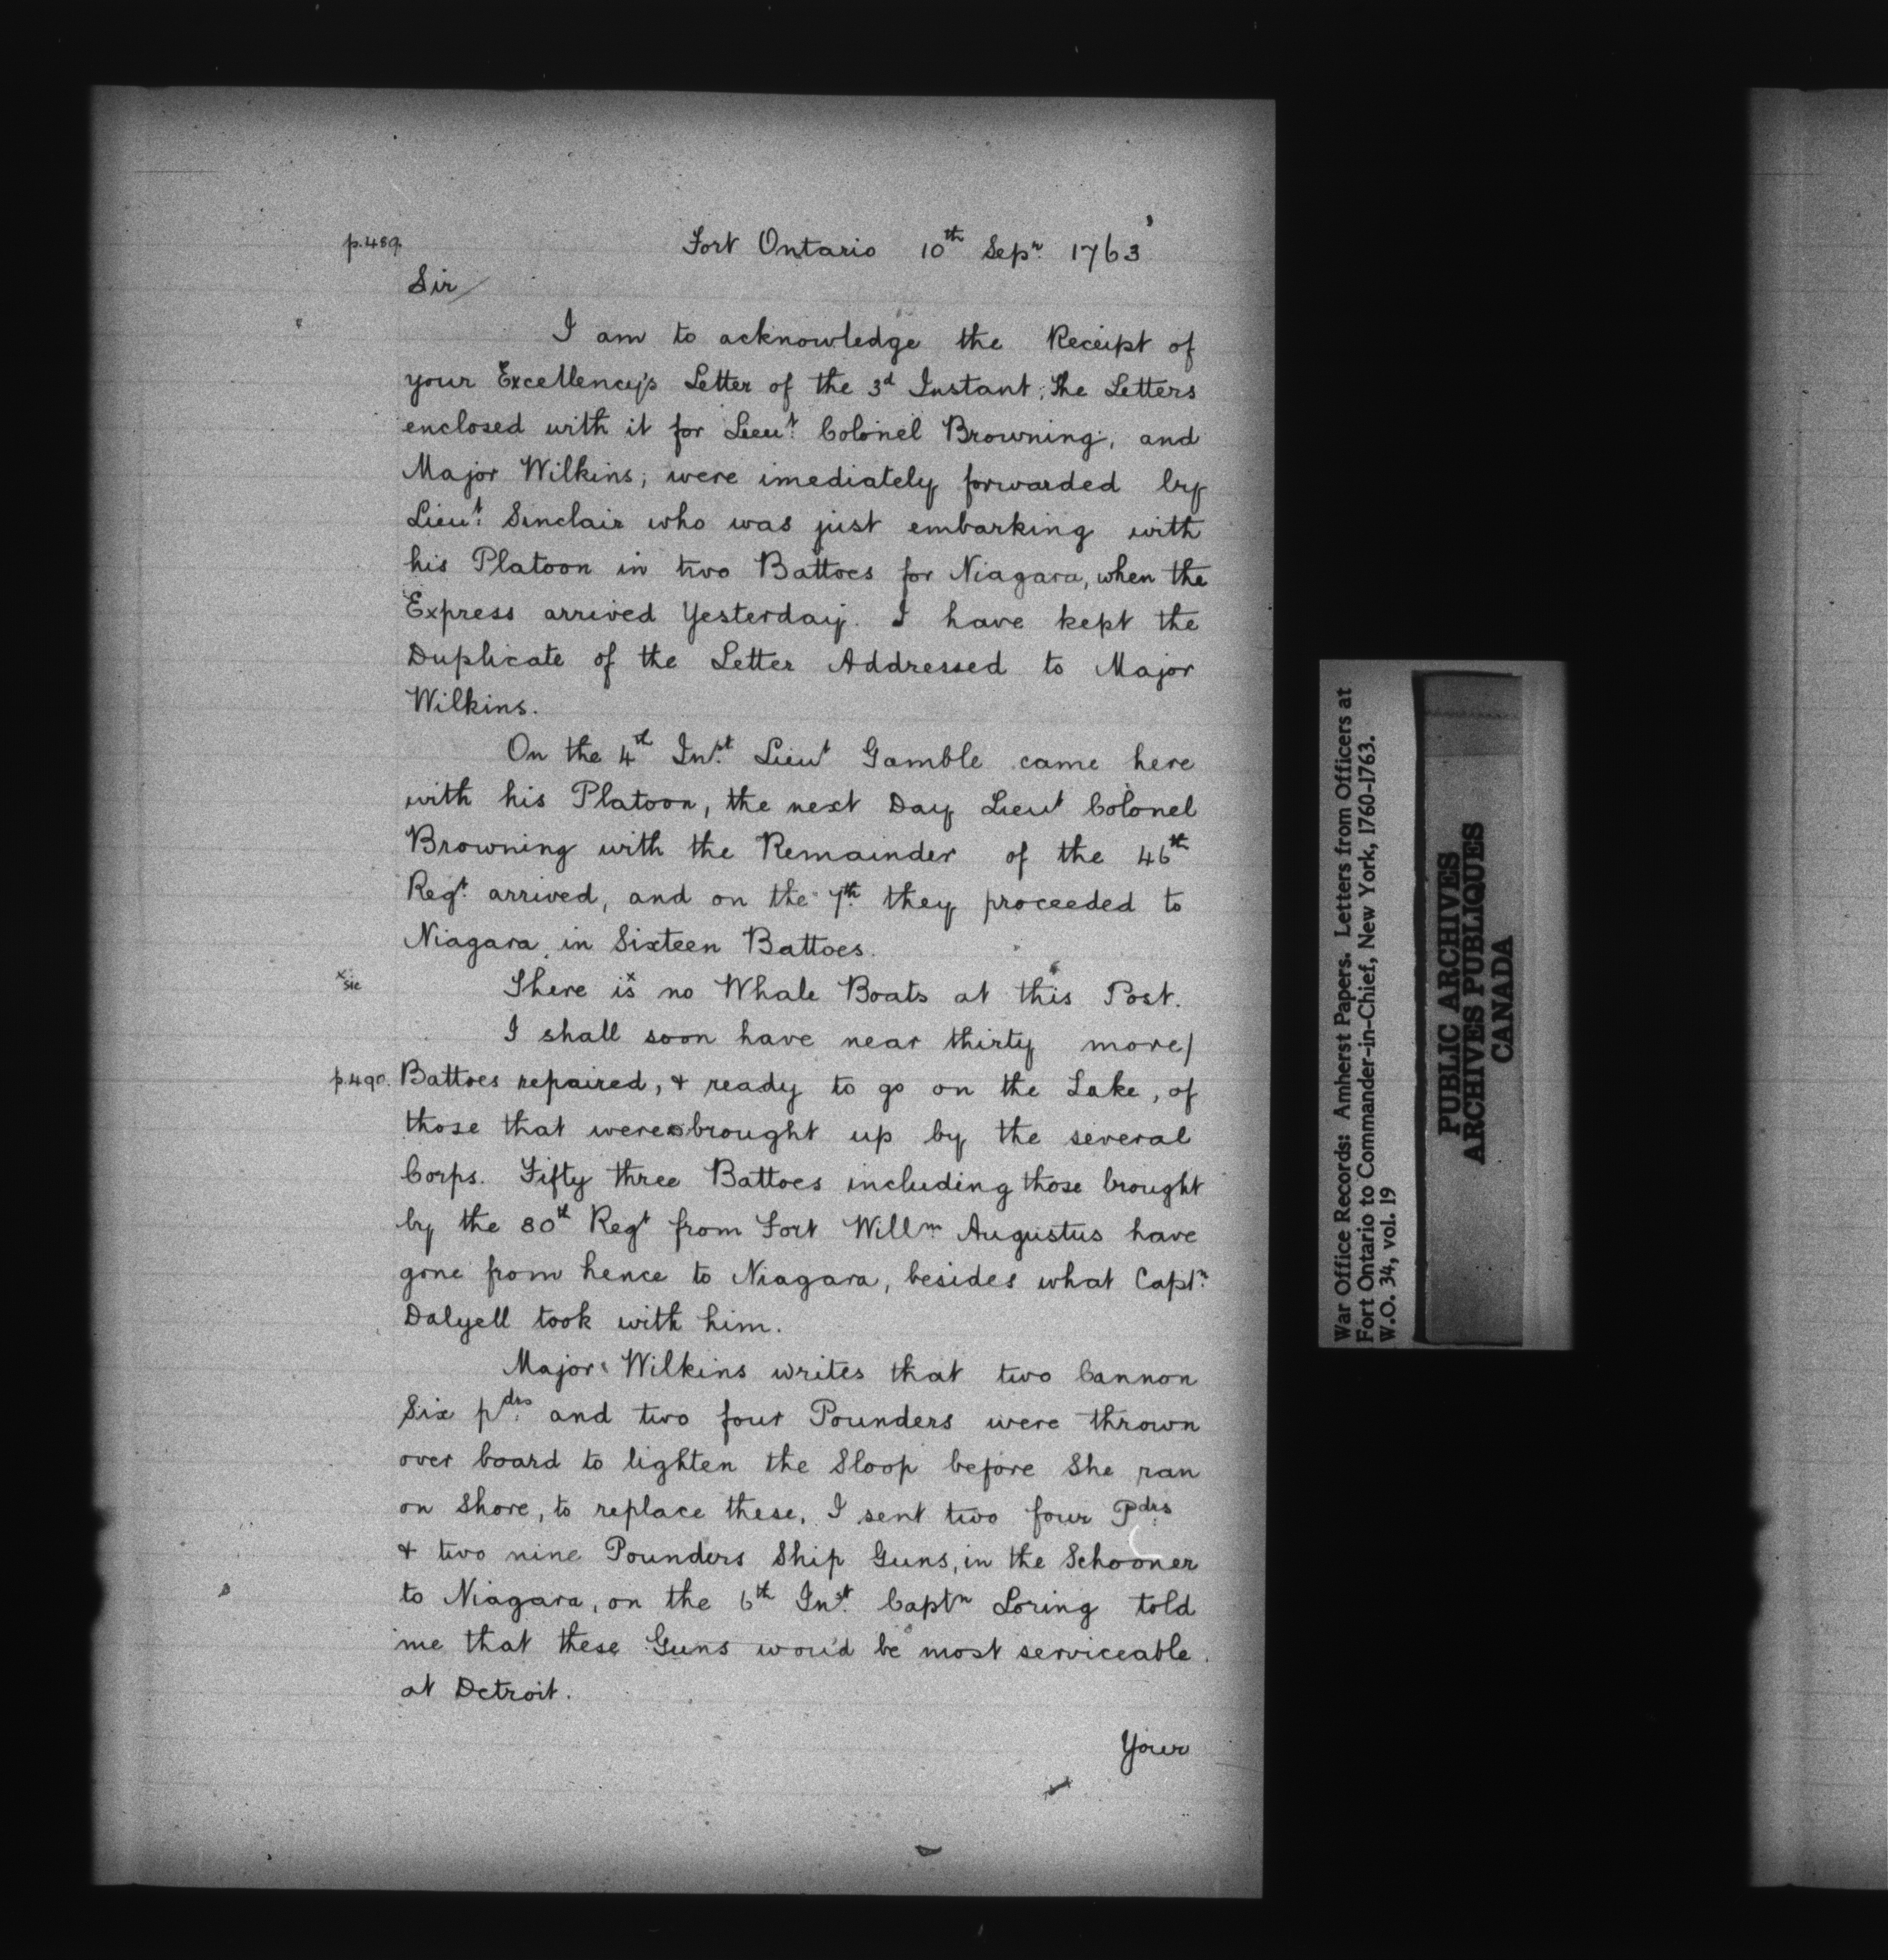 p.489.
Fort Ontario 10th Sepr. 1763
Sir/
I am to acknowledge the Receipt of
your Excellency's Letter of the 3d Instant; The Letters
enclosed with it for Lieut. Colonel Browning, and
Major Wilkins; were imediately forwarded by
Lieut. Sinclair who was just embarking with
his Platoon in two Battoes for Niagara, when the
Express arrived Yesterday. I have kept the
Duplicate of the Letter Addressed to Major
Wilkins.
On the 4th Inst. Lieut Gamble came here
with his Platoon, the next Day Lieut Colonel
Browning with the Remainder of the 46th
Regt. arrived, and on the 7th. they proceeded to
Niagara in Sixteen Battoes.
x sic
There is x no Whale Boats at this Post.
I shall soon have near thirty more/
p.490. Battoes repaired, & ready to go on the Lake, of
those that were brought up by the several
Corps. Fifty three Battoes including those brought
by the 80th Regt from Fort Willm. Augustus have
gone from hence to Niagara, besides what Captn.
Dalyell took with him.
Major Wilkins writes that two Cannon
Six pdrs. and two four Pounders were thrown
over board to lighten the Sloop before She ran
on Shore, to replace these, I sent two four Pdrs.
& two nine Pounders Ship Guns, in the Schooner
to Niagara, on the 6th Inst. Captn Loring told
me that these Guns wou'd be most serviceable
at Detroit.
Your
War Office Records: Amherst Papers. Letters from Officers at
Fort Ontario to Commander-in-Chief, New York, 1760-1763.
W.O. 34, vol. 19
PUBLIC ARCHIVES
ARCHIVES PUBLIQUES
CANADA